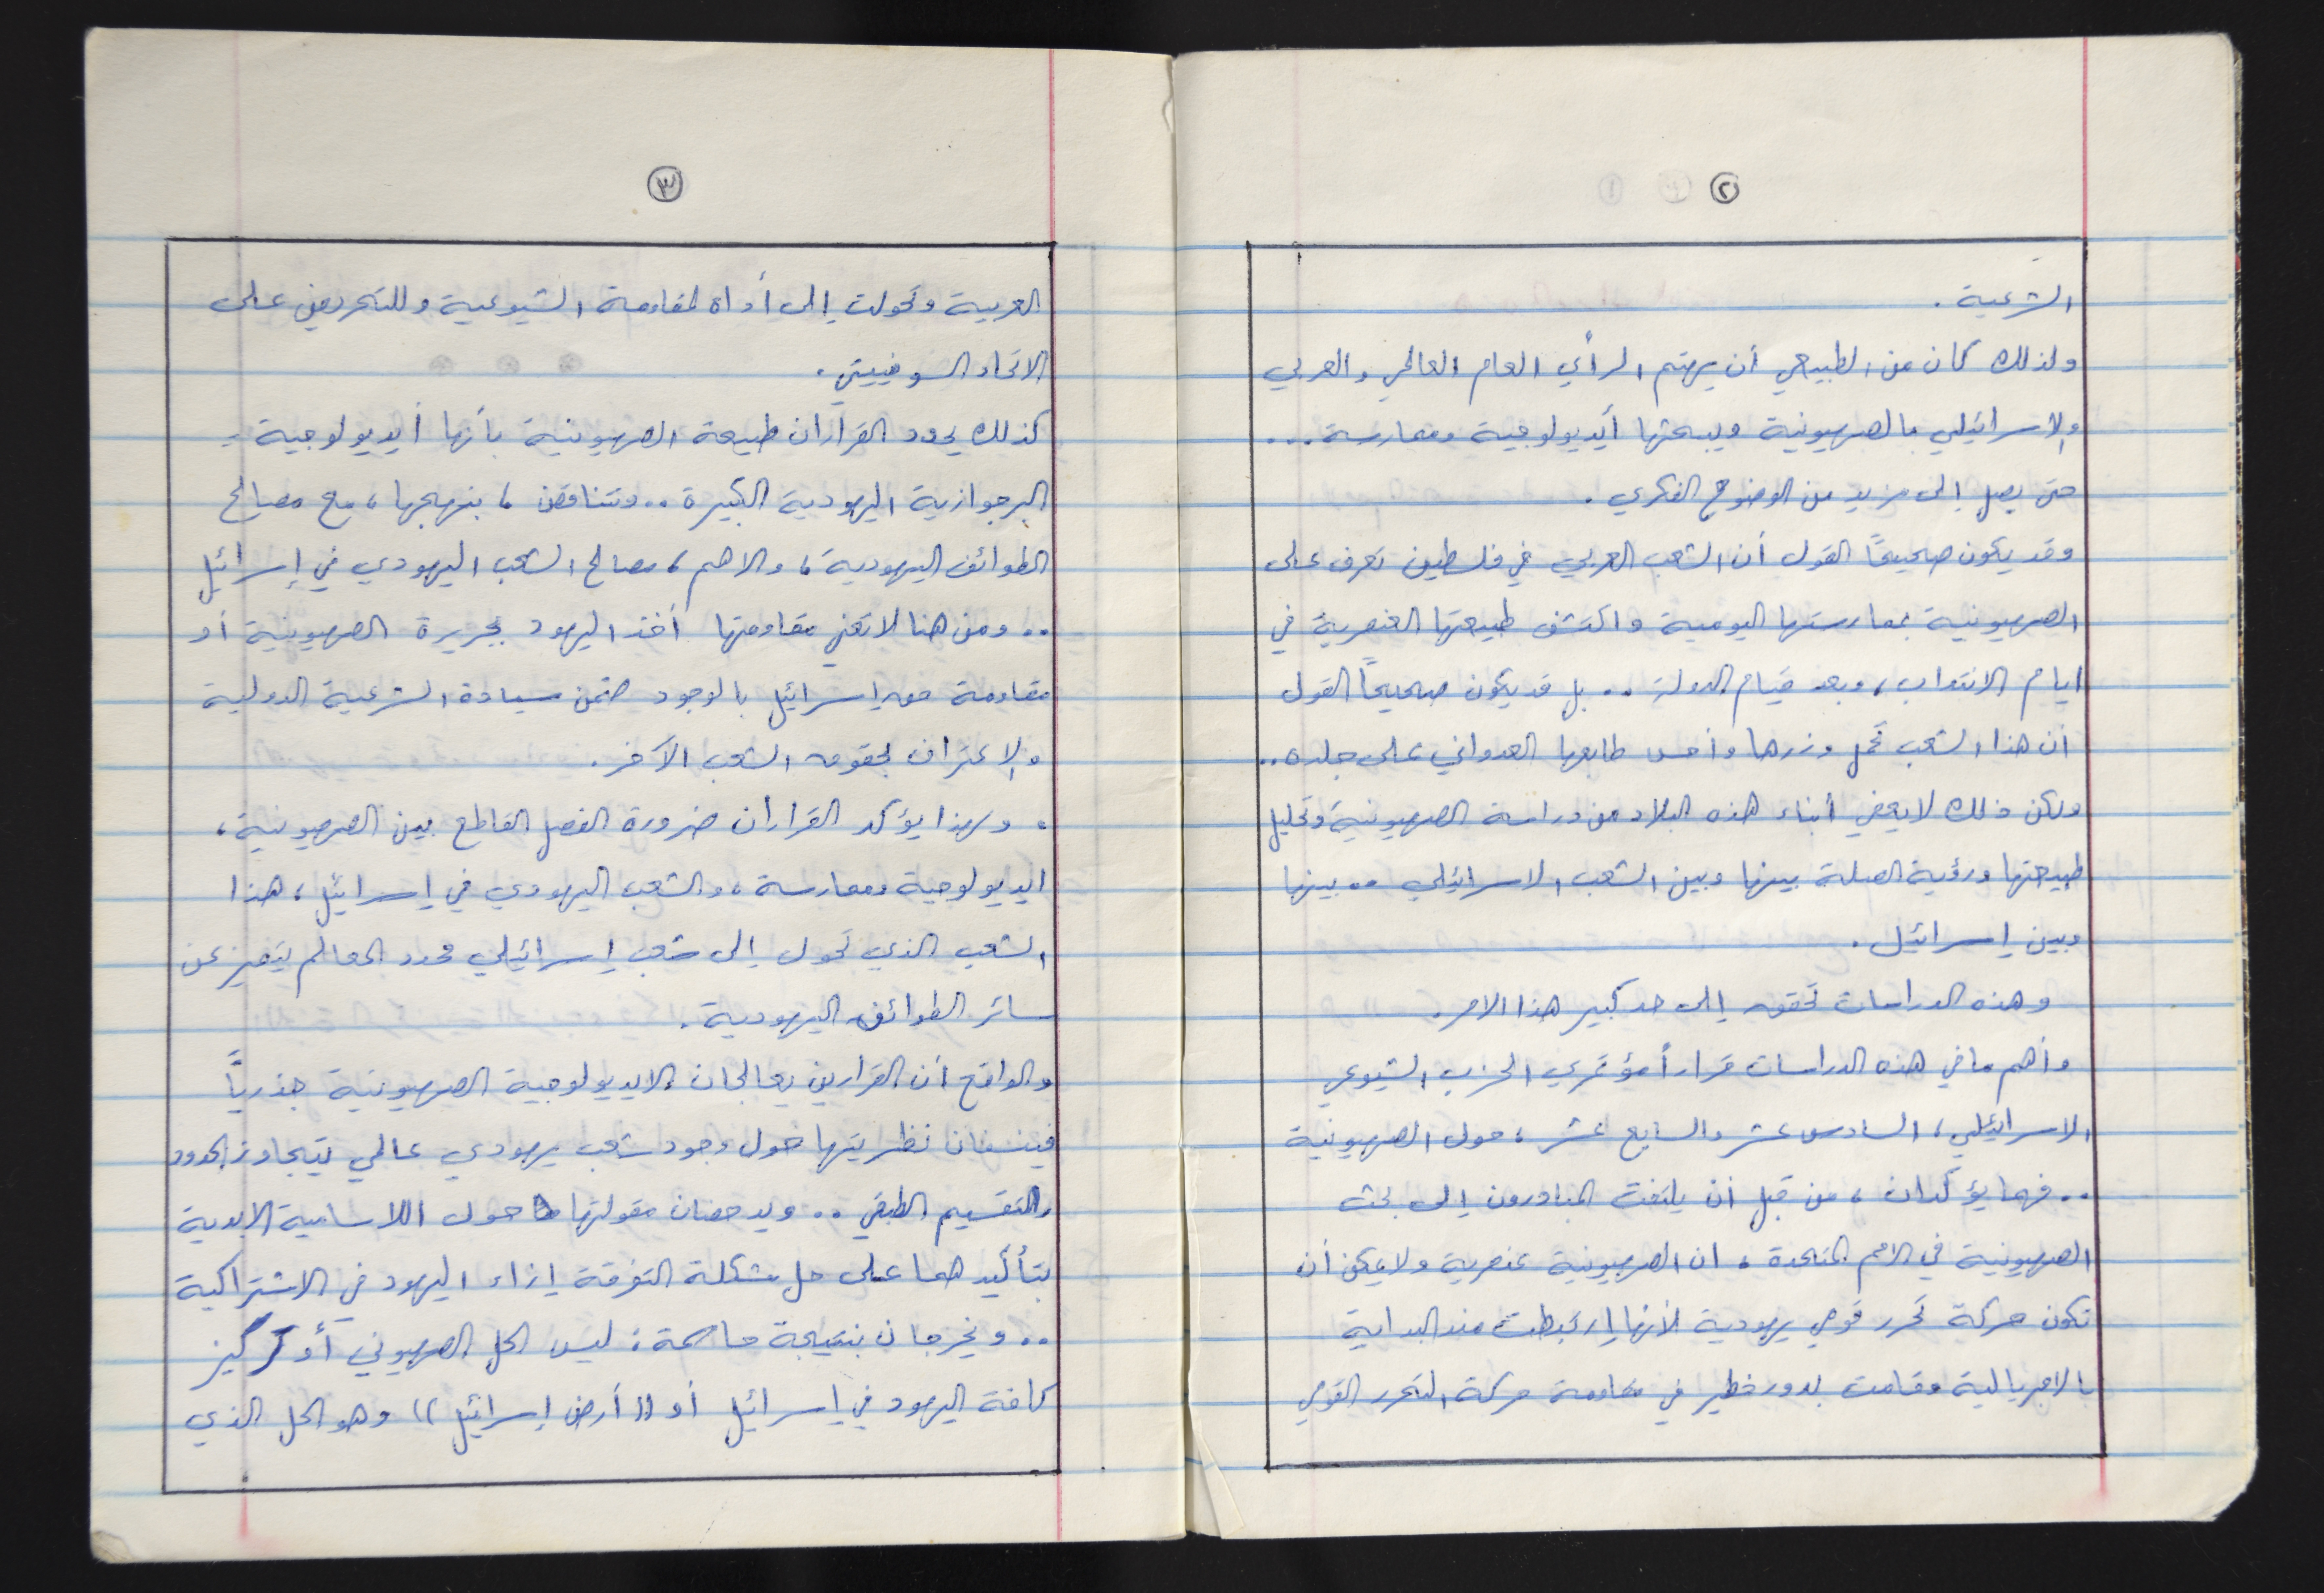 ٢
الشرعية .
ولذلك كان من الطبيعي أن يهتم الرأي العام العالمي والعربي
والاسرائيلي بالصهيونية ويبحثها أيديولوجية وممارسة ...
حتى يصل إلى مزيد من الوضوح الفكري .
وقد يكون صحيحًا القول أن الشعب العربي في فلسطين تعرف على
الصهيونية بممارستها اليومية واكتشف طبيعتها العنصرية في
ايام الانتداب، وبعد قيام الدولة .. بل قد يكون صحيحاً القول
أن هذا الشعب تحمل وزرها وأحس طابعها العدواني على جلده ..
ولكن ذلك لا يعفي أبناء هذه البلاد من دراسة الصهيونية وتحليل
طبيعتها ورؤية الصلة بينها وبين الشعب الاسرائيلي .. بينها
وبين إسرائيل .
وهذه الدراسات تحقق إلى حد كبير هذا الامر .
وأهم ما في هذه الدراسات قراراً مؤتمري الحزب الشيوعي
الاسرائيلي، السادس عشر والسابع عشر، حول الصهيونية
.. فهما يؤكدان، من قبل أن يلتفت المبادرون إلى بحث
الصهيونية في الامم المتحدة، ان الصهيونية عنصرية ولا يمكن أن
تكون حركة تحرر قومي يهودية لأنها إرتبطت منذ البداية
بالامبريالية وقامت بدور خطير في مقاومة حركة التحرر القومي
٣
العربية وتحولت إلى أداة لمقاومة الشيوعية وللتحريض على
الاتحاد السوفييتي .
كذلك يحدد القراران طبيعة الصهيونية بأنها أيديولوجية -
البرجوازية اليهودية الكبيرة .. وتتناقض، بنهجها، مع مصالح
الطوائف اليهودية، والاهم، مصالح الشعب اليهودي في إسرائيل
.. ومن هنا لا تعني مقاومتها أخذ اليهود بجريرة الصهيونية أو
مقاومة حق إسرائيل بالوجود ضمن سيادة الشرعية الدولية
والاعتراف بحقوق الشعب الآخر .
. وبهذا يؤكد القراران ضرورة الفصل القاطع بين الصهيونية،
ايديولوجية وممارسة، والشعب اليهودي في إسرائيل، هذا
الشعب الذي تحول إلى شعب إسرائيلي محدد المعالم يتميز عن
سائر الطوائف اليهودية .
والواقع أن القرارين يعالجان الايديولوجية الصهيونية جذرياً
فينسفان نظريتها حول وجود شعب يهودي عالمي يتجاوز الحدود
والتقسيم الطبقي .. ويدحضان مقولتها حول اللاسامية الابدية
بتأكيدهما على حل مشكلة التفرقة إزاء اليهود في الاشتراكية
.. ويخرجان بنتيجة حاسمة : ليس الحل الصهيوني أو تركيز
كافة اليهود في إسرائيل أو (( أرض إسرائيل )) وهو الحل الذي